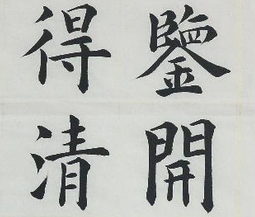 鑒開
得清